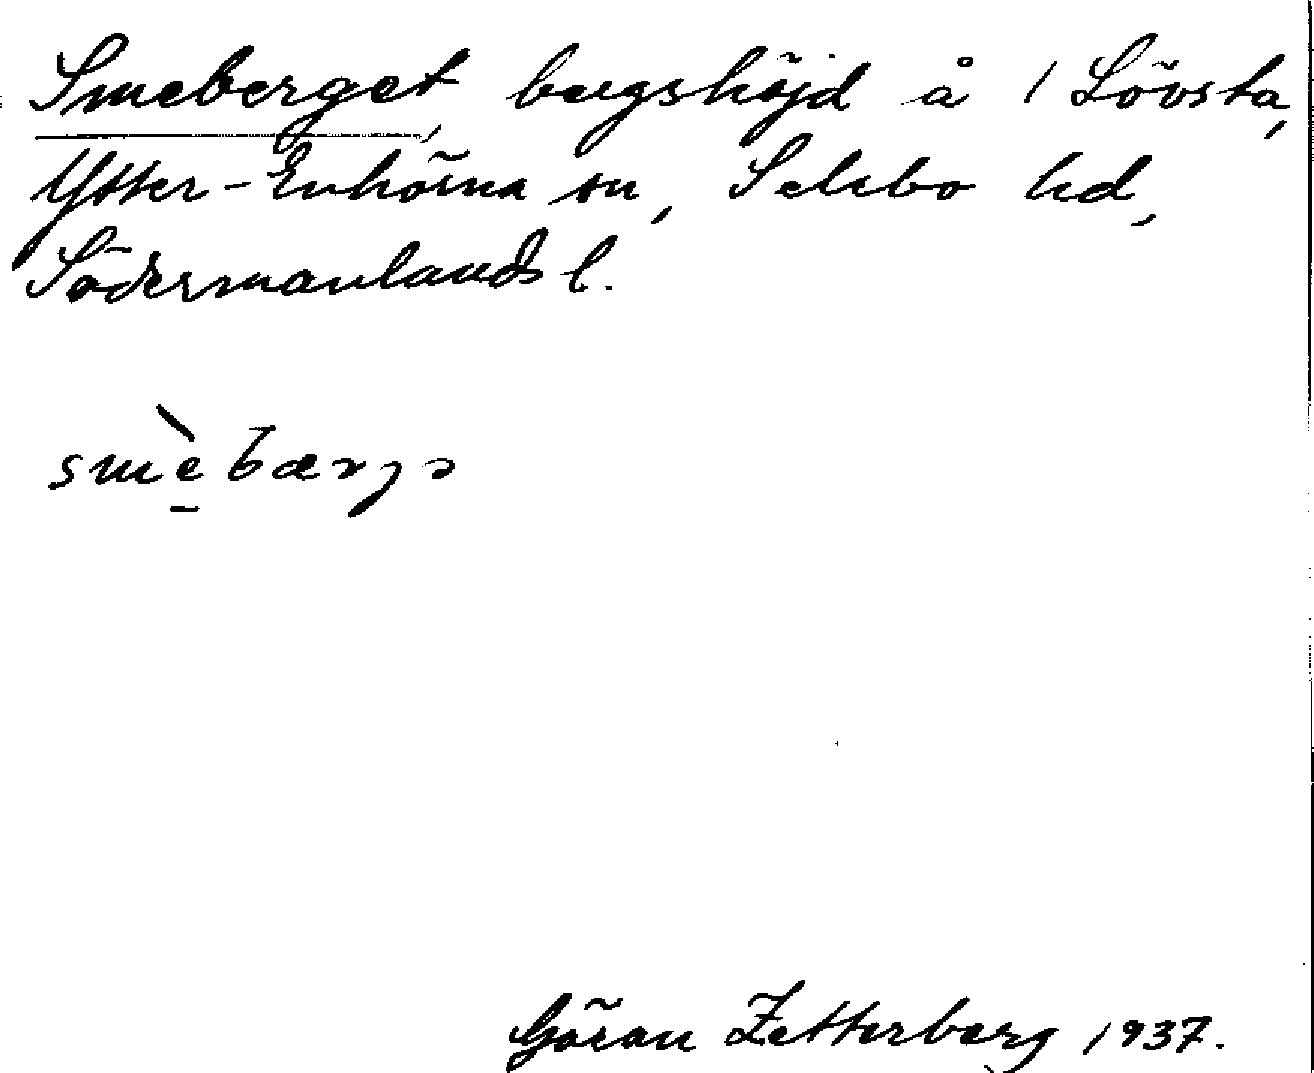 Smeberget, bergshöjd å 1 Lövsta,
Ytter-Enhörna sn, Selebo hd,
Södermanlands l.
smè̠bærjə
Göran Zetterberg 1937.